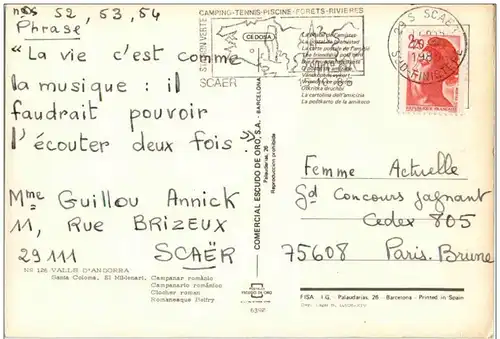 nos 52, 53, 54
Phrase
"La vie c'est comme
la musique : il
faudrait pouvoir
l'écouter deux fois."
Mme Guillou Annick
11, Rue BRIZEUX
29111 SCAËR
VALLS D'ANGORRA
Santa Coloma. El Mil·lenari.
Campanar romànic
Campanario románico
Clocher roman
Romanesque Belfry
CAMPING-TENNIS-PISCINE-FORETS-RIVIERES
STATION VERTE
SCAER
COMERCIAL ESCUDO DE ORO, S.A. - BARCELONA
Palaudarias, 26
Reproduccion prohibida
29 S SCAER
S-FINISTERE
2,20
Femme Actuelle
Gd Concours gagnant
Cedex 805
75608 Paris. Brune
FISA I.G. - Palaudarias, 26 - Barcelona - Printed in Spain